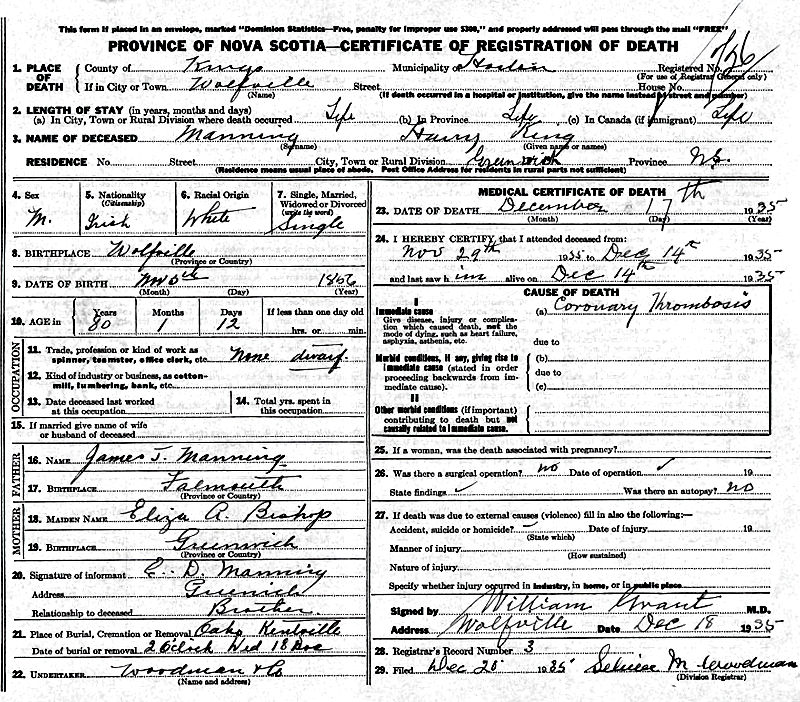 This form if placed in an envelope, marked "Dominion Statistics—Free, penalty for improper use $300," and properly addressed will pass through the mail "FREE"
PROVINCE OF NOVA SCOTIA—CERTIFICATE OF REGISTRATION OF DEATH
1. PLACE OF DEATH County of Kings Municipality of Registered No. 726
(For use of Registrar General only)
If in City or Town Wolfville Street House No.
(Name) (If death occurred in a hospital or institution, give the name instead of street and number)
2. LENGTH OF STAY (in years, months and days)
(a) In City, Town or Rural Division where death occurred Life (b) In Province Life (c) In Canada (if immigrant) Life
3. NAME OF DECEASED Manning Harry King
(Surname) (Given name or names)
RESIDENCE No. Street City, Town or Rural Division Greenwich Province N.S.
(Residence means usual place of abode. Post Office Address for residents in rural parts not sufficient)
4. Sex M.
5. Nationality (Citizenship) Irish
6. Racial Origin White
7. Single, Married, Widowed or Divorced (write the word) Single
8. BIRTHPLACE Wolfville
(Province or Country)
9. DATE OF BIRTH Nov 5th 1866
(Month) (Day) (Year)
10. AGE in Years Months Days If less than one day old
80 1 12 hrs. or min.
OCCUPATION
11. Trade, profession or kind of work as spinner, teamster, office clerk, etc. None dwarf.
12. Kind of industry or business, as cotton-mill, lumbering, bank, etc.
13. Date deceased last worked at this occupation
14. Total yrs. spent in this occupation
15. If married give name of wife or husband of deceased
FATHER
16. NAME James T. Manning
17. BIRTHPLACE Falmouth
(Province or Country)
MOTHER
18. MAIDEN NAME Eliza A. Bishop
19. BIRTHPLACE Greenwich
(Province or Country)
20. Signature of informant D. Manning
Address
Relationship to deceased Brother
21. Place of Burial, Cremation or Removal Oaks Kentville
Date of burial or removal 2 Oclock Wed 18 Dec
22. UNDERTAKER Woodman & Co
(Name and address)
MEDICAL CERTIFICATE OF DEATH
23. DATE OF DEATH December 17th 1935
(Month) (Day) (Year)
24. I HEREBY CERTIFY, that I attended deceased from:
Nov 29th 1935 to Dec 14th 1935
and last saw him alive on Dec 14th 1935
CAUSE OF DEATH
I
Immediate cause
Give disease, injury or complication which caused death, not the mode of dying, such as heart failure, asphyxia, asthenia, etc.
(a) Coronary Thrombosis
due to
Morbid conditions, if any, giving rise to immediate cause (stated in order proceeding backwards from immediate cause).
(b)
due to
(c)
II
Other morbid conditions (if important) contributing to death but not causally related to immediate cause.
25. If a woman, was the death associated with pregnancy?
26. Was there a surgical operation? no Date of operation ✓ 19
State findings ✓ Was there an autopsy? no
27. If death was due to external causes (violence) fill in also the following:—
Accident, suicide or homicide? Date of injury 19
(State which)
Manner of injury
(How sustained)
Nature of injury
Specify whether injury occurred in industry, in home, or in public place
Signed by William Grant M.D.
Address Wolfville Date Dec 18 1935
28. Registrar's Record Number 3
29. Filed Dec 20 1935 M. Woodman
(Division Registrar)